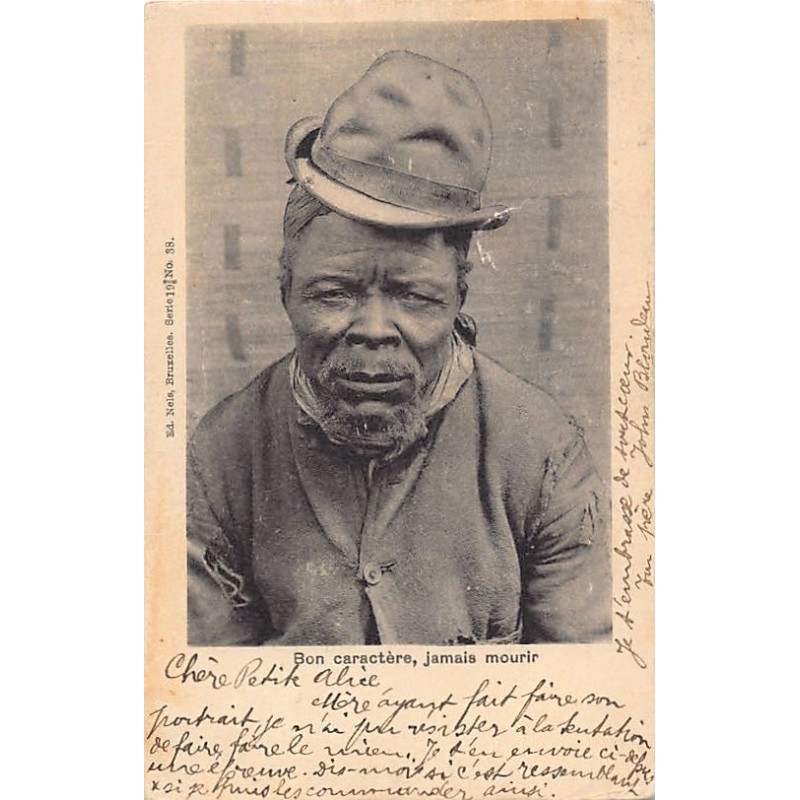 Ed. Nels, Bruxelles. Serie 19 No. 38.
Bon caractère, jamais mourir
Chère Petite Alice
Mère ayant fait faire son
portrait, je n'ai pu résister à la tentation
de faire faire le mien. Je t'en envoie ci-
une épreuve. Dis-moi si c'est ressemblant
x si je puis les commander ainsi.
Je t'embrasse de tout cœur.
Ton père John